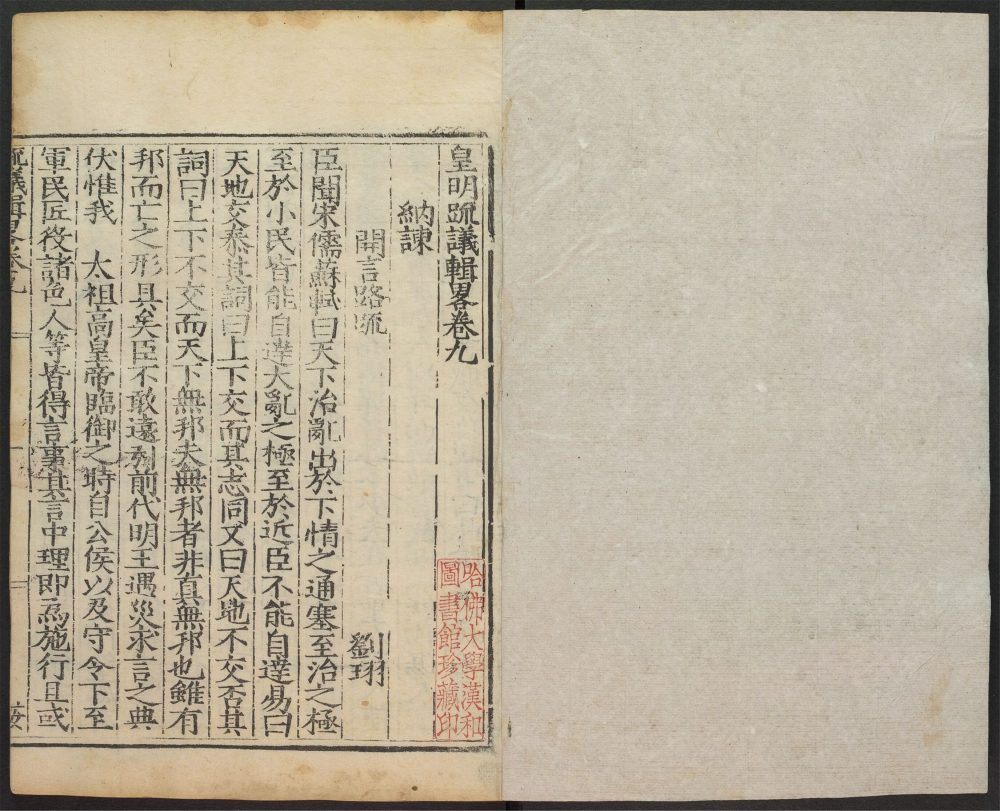 皇明䟽議輯畧卷九
納諫
開言路䟽
劉珝
臣聞宋儒蘇軾曰天下治亂出於下情之通塞至治之極
至於小民皆能自達大亂之極至於近臣不能自達易曰
天地交泰其詞曰上下交而其志同又曰天地不交否其
詞曰上下不交而天下無邦夫無邦者非真無邦也雖有
邦而亡之形具矣臣不敢遠列前代明王遇災求言之典
伏惟我 太祖高皇帝臨御之時自公侯以及守令下至
軍民匠役諸色人等皆得言事其言中理即爲施行且或
䟽議輯畧卷九
哈佛大學漢和
圖書館珍藏印